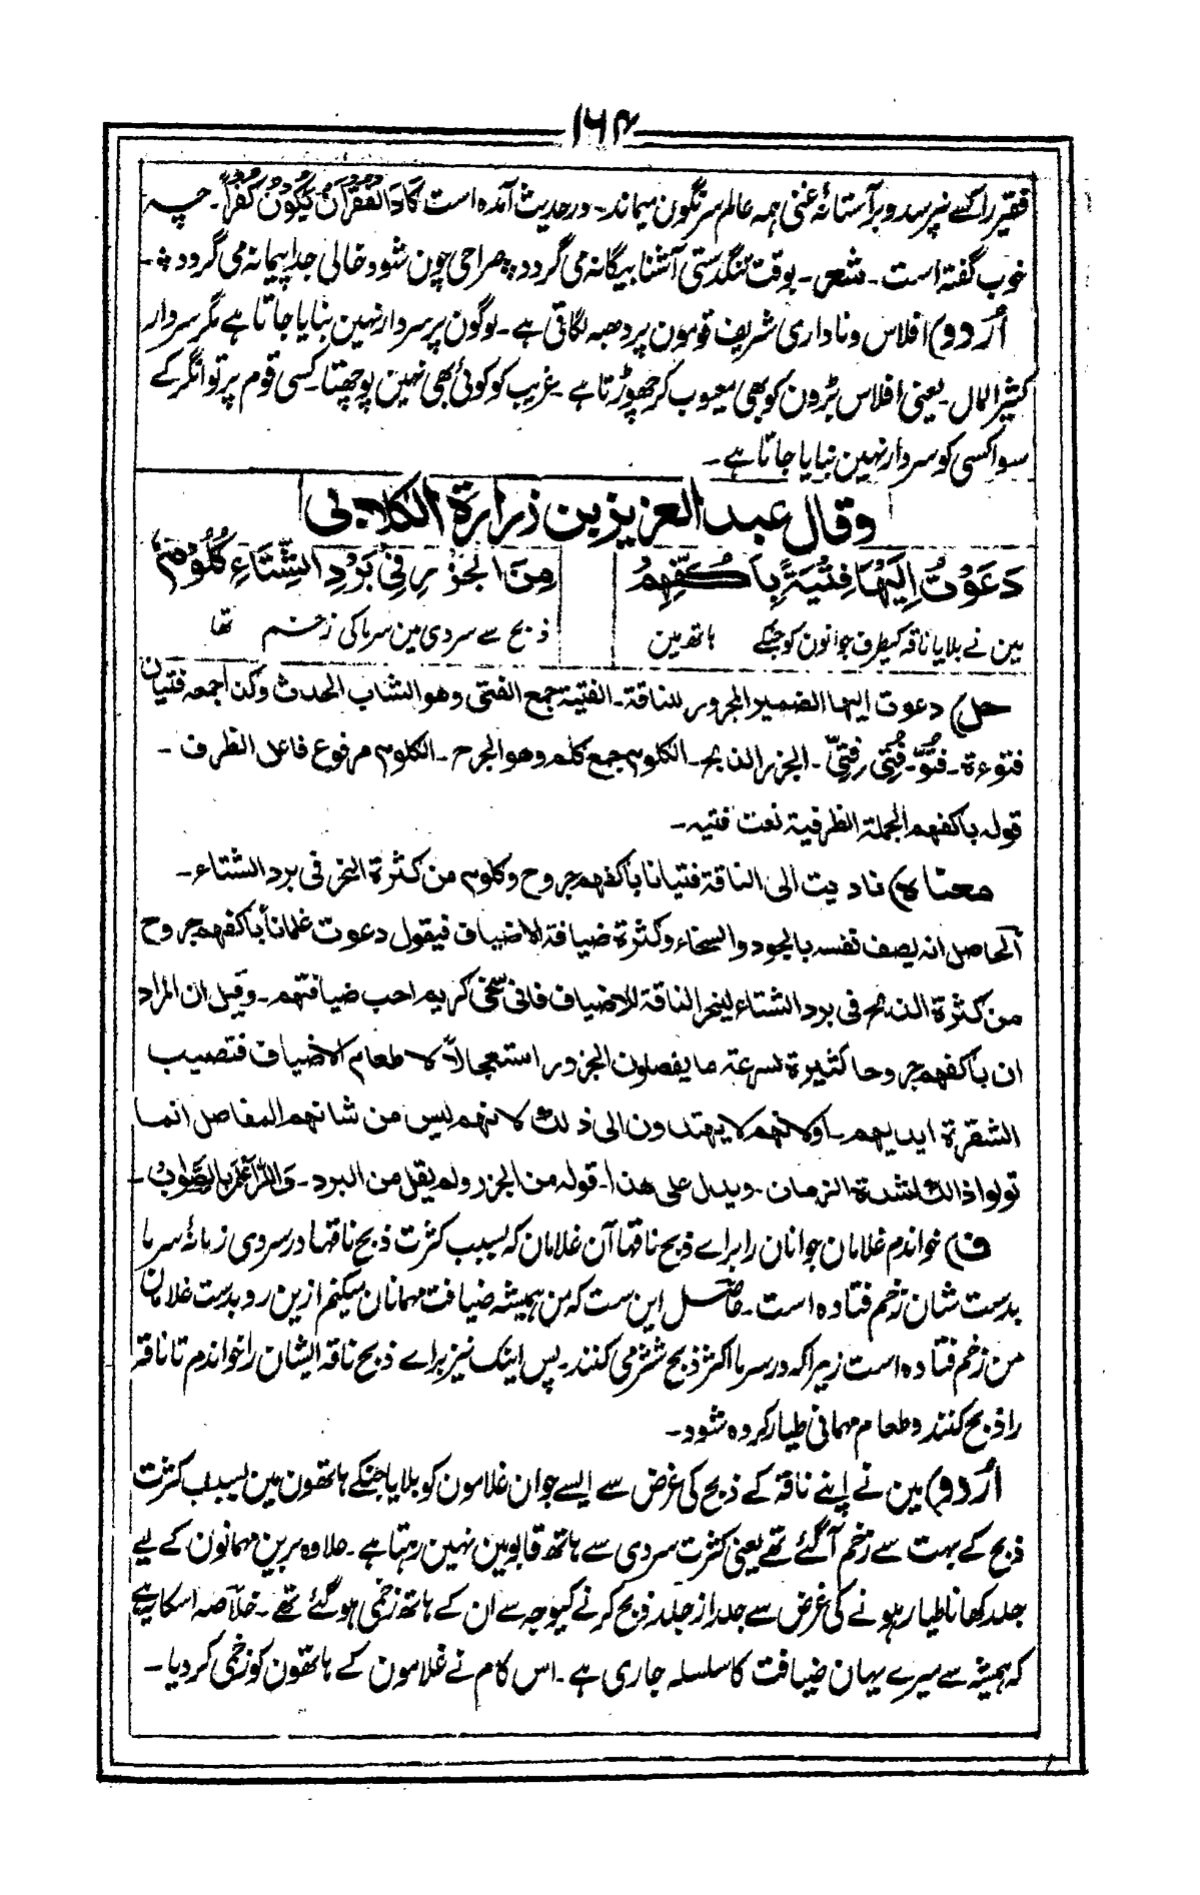 ۱۶۴
فقیر را کسے نپرسد و بر آستانۂ غنی ہمہ عالم سرنگون میماند۔ در حدیث آمدہ است كَادَ الْفَقْرُ اَنْ یَّكُوْنَ كُفْرًا۔ چہ
خوب گفتہ است۔ شعر۔ بوقت تنگدستی آشنا بیگانہ می گردد ؞ صراحی چون شود خالی جدا پیمانہ می گردد ؞۔
اُردو) افلاس و ناداری شریف قومون پر دھبہ لگاتی ہے۔ لوگون پر سردار نہین بنایا جاتا ہے مگر سردار
کثیر المال۔ یعنی افلاس بڑون کو بھی معیوب کر چھوڑتا ہے۔ غریب کو کوئی بھی نہین پوچھتا۔ کسی قوم پر توانگر کے
سوا کسی کو سردار نہین بنایا جاتا ہے۔
وقال عبد العزیز بن زرارة الکلابی
دَعَوْتُ اِلَیْهَا فِتْیَةً بِاَكُفِّهِمْ مِنَ الْجَزْرِ فِیْ بَرْدِ الشِّتَاءِ كُلُوْمٗ
مین نے بلایا ناقہ کیطرف جوانون کو جنکے ہاتھ مین ذبح سے سردی مین سرما کی زخم تھا
حل) دعوت الیها الضمیر المجرور للناقة۔ الفتیة جمع الفتی وهو الشاب الحدث وکذا جمعه فتیان
فتوءة۔ فُتُوٌّ۔ فُتِیٌّ۔ فِتِیٌّ۔ الجزر الذبح۔ الکلوم جمع کلم وهو الجرح۔ الکلوم مرفوع فاعل الظرف۔
قوله باکفهم الجملة الظرفیة نعت فتیه۔
معناه) نادیت الی الناقة فتیانا باکفهم جروح وکلوم من کثرة النحر فی برد الشتاء۔
اَلحاصل انه یصف نفسه بالجود والسخاء وکثرة ضیافة الاضیاف فیقول دعوت غلماناً باکفهم جروح
من کثرة الذبح فی برد الشتاء لینحر الناقة للاضیاف فانی سخی کریم احب ضیافتهم۔ وقیل ان المراد
ان باکفهم جروحا کثیرة لسرعة ما یفصلون الجزور استعجالاً لاطعام الاضیاف فتصیب
الشقرة ایدیهم۔ اولانهم لا یهتدون الی ذلك لانهم لیس من شانهم المفاصل انما
تولوا ذالك لشدة الزمان۔ ویدل علی هذا۔ قوله من الجزر ولم یقل من البرد۔ وَاللّٰهُ اَعْلَمُ بِالصَّوَابِ۔
ف) خواندم غلامان جوانان را براے ذبح ناقہا آن غلامان کہ بسبب کثرت ذبح ناقہا در سردی زمانۂ سرما
بدست شان زخم فتادہ است۔ حاصل این ست کہ من ہمیشہ ضیافت مہمانان میکنم ازین رو بدست غلامان
من زخم فتادہ است زیراکہ در سرما اکثر ذبح شتر می کنند۔ پس اینک نیز براے ذبح ناقہ ایشان را خواندم تا ناقہ
را ذبح کنند و طعام مہمانی طیار کردہ شود۔
اُردو) مین نے اپنے ناقہ کے ذبح کی غرض سے ایسے جوان غلامون کو بلایا جنکے ہاتھون مین بسبب کثرت
ذبح کے بہت سے زخم آ گئے تھے یعنی کثرت سردی سے ہاتھ قابو مین نہین رہتا ہے۔ علاوہ برین مہمانون کے لیے
جلد کھانا طیار ہونے کی غرض سے جلد از جلد ذبح کرنے کیوجہ سے ان کے ہاتھ زخمی ہو گئے تھے۔ خلاصہ اسکا یہ ہے
کہ ہمیشہ سے میرے یہان ضیافت کا سلسلہ جاری ہے۔ اس کام نے غلامون کے ہاتھون کو زخمی کر دیا۔